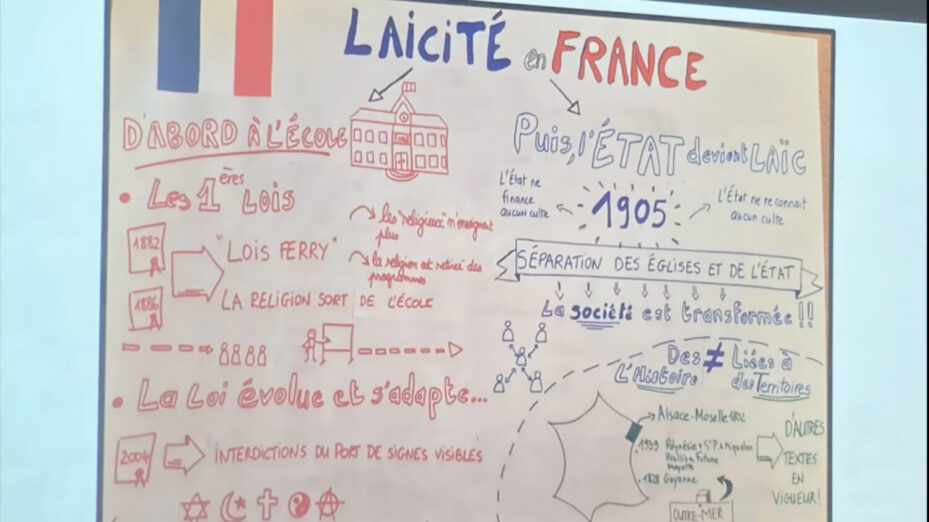 LAICITÉ en FRANCE
D'ABORD À L'ÉCOLE
• Les 1ères LOIS
1882
1886
"LOIS FERRY"
les "religieux" n'enseignent
plus
la religion est retirée des
programmes
LA RELIGION SORT DE L'ÉCOLE
• La Loi évolue et s'adapte...
2004
INTERDICTIONS DU PORT DE SIGNES VISIBLES
Puis, l'ÉTAT devient LAÏC
L'État ne
finance
aucun culte
1905
L'État ne reconnait
aucun culte
SÉPARATION DES ÉGLISES ET DE L'ÉTAT
La société est transformée !!
Des ≠ Liées à
L'Histoire
des Territoires
Alsace-Moselle 1802
• 1939 Polynésie + St P. & Miquelon
Wallis & Futuna
Mayotte
• 1828 Guyanne
D'AUTRES
TEXTES
EN
VIGUEUR!
OUTRE-MER